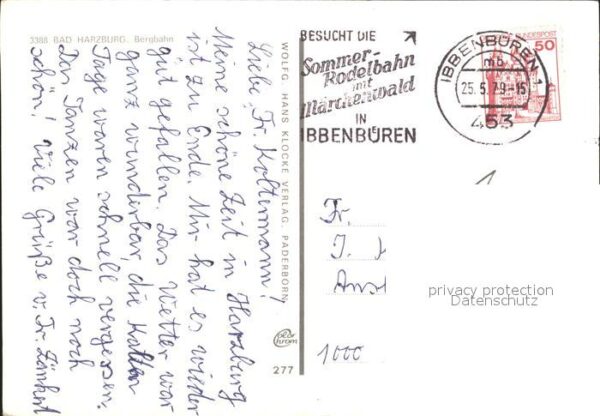 3388 BAD HARZBURG, Bergbahn
Liebe Fr. Koltermann!
Meine schöne Zeit in Harzburg
ist zu Ende. Mir hat es wieder
gut gefallen. Das Wetter war
ganz wunderbar, die kalten
Tage waren schnell vergessen.
Das Tanzen war doch noch
schön! Viele Grüße v. Fr.
WOLFG. HANS KLOCKE VERLAG, PADERBORN
colorchrom
277
BESUCHT DIE
Sommer-
Rodelbahn
mit
Märchenwald
IN
IBBENBÜREN
IBBENBÜREN 1
mb
25.5.79-15
453
DEUTSCHE BUNDESPOST
50
1
Fr.
I.
1000
privacy protection
Datenschutz